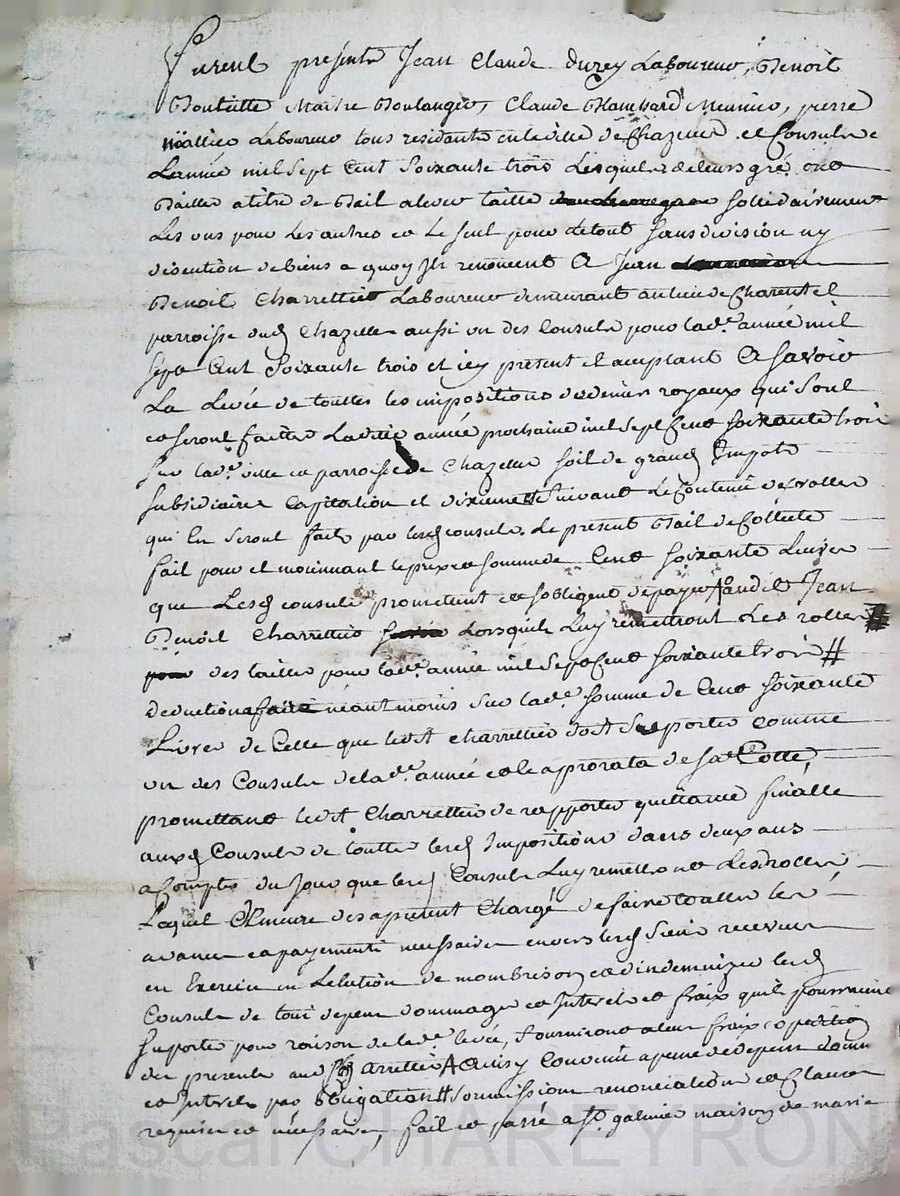 Furent présents Jean Claude durey Laboureur, Benoit
Boulette Maitre Boulanger, Claude Meunier, pierre
Laboureur tous residants en la ville de Chazelle et Consuls
L'année mil sept Cent soixante trois Lesquels de leurs gré ont
Baillés a titre de Bail a lever taille sollidairement
Les uns pour les autres et le seul pour de tout sans division ny
disention de biens a quoy ils renoncent A Jean
Benoit Charrettier Laboureur demeurant au lieu de Charentel
parroisse dud Chazelle aussi un des Consuls pour lad.e année mil
sept Cent soixante trois et icy present et aceptant A savoir
La Levée de touttes les impositions et deniers royaux qui sont
et seront faittes laditte année prochaine mil sept Cent soixante trois
sur lad.e ville et parroisse de Chazelle soit de grands Impots
subsidiaires Capitation et dixiemes suivant le Contenu des rolles
qui en seront faits par lesd consuls. Le present Bail de Collecte
fait pour et moiennant le prix et somme de Cent soixante Livres
que Lesd consuls promettent et sobligent de payer audit Jean
Benoit Charrettier Lorsquils Luy remettront Les rolles #
des tailles pour lad.e année mil sept Cent soixante trois #
deduction faite neantmoins sur lad.e somme de Cent soixante
Livres de Celle que ledit Charrettier doit suporter comme
un des Consuls de lad.e année et le a prorata de sa Cotte,
promettant ledit Charrettier de rapporter quittance finalle
auxd Consuls de touttes lesd Impositions dans deux ans
a Compter du Jour que lesd Consuls Luy remettront Lesd rolles,
Lequel demeure des a present Chargé de faire touttes les
avances et payements necessaires envers lesd Sieurs receveurs
en Exercice en Lelection de monbrison et dindemnizer lesd
Consuls de tous depens dommages et Interets et fraix quils pourroient
suporter pour raison de lad.e levée, fourniront a leur fraix expedition
des presentes aud Charrettier Ainsy Convenu a peine de depens dom.
et Interets par obligation # soumission renonciation et Clauses
requises et necessaires, fait et passé a St galmier maison de marie
Pascal CHAREYRON